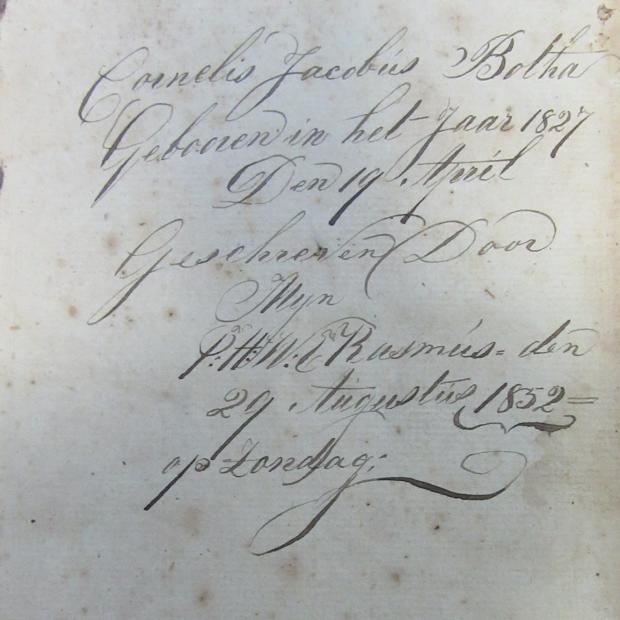 Cornelis Jacobús Botha
Gebooren in het Jaar 1827
Den 19 April
Geschreven Door
Myn
P: H: W: E Rasmús = den
29 Augustús 1852 =
op Zondag;